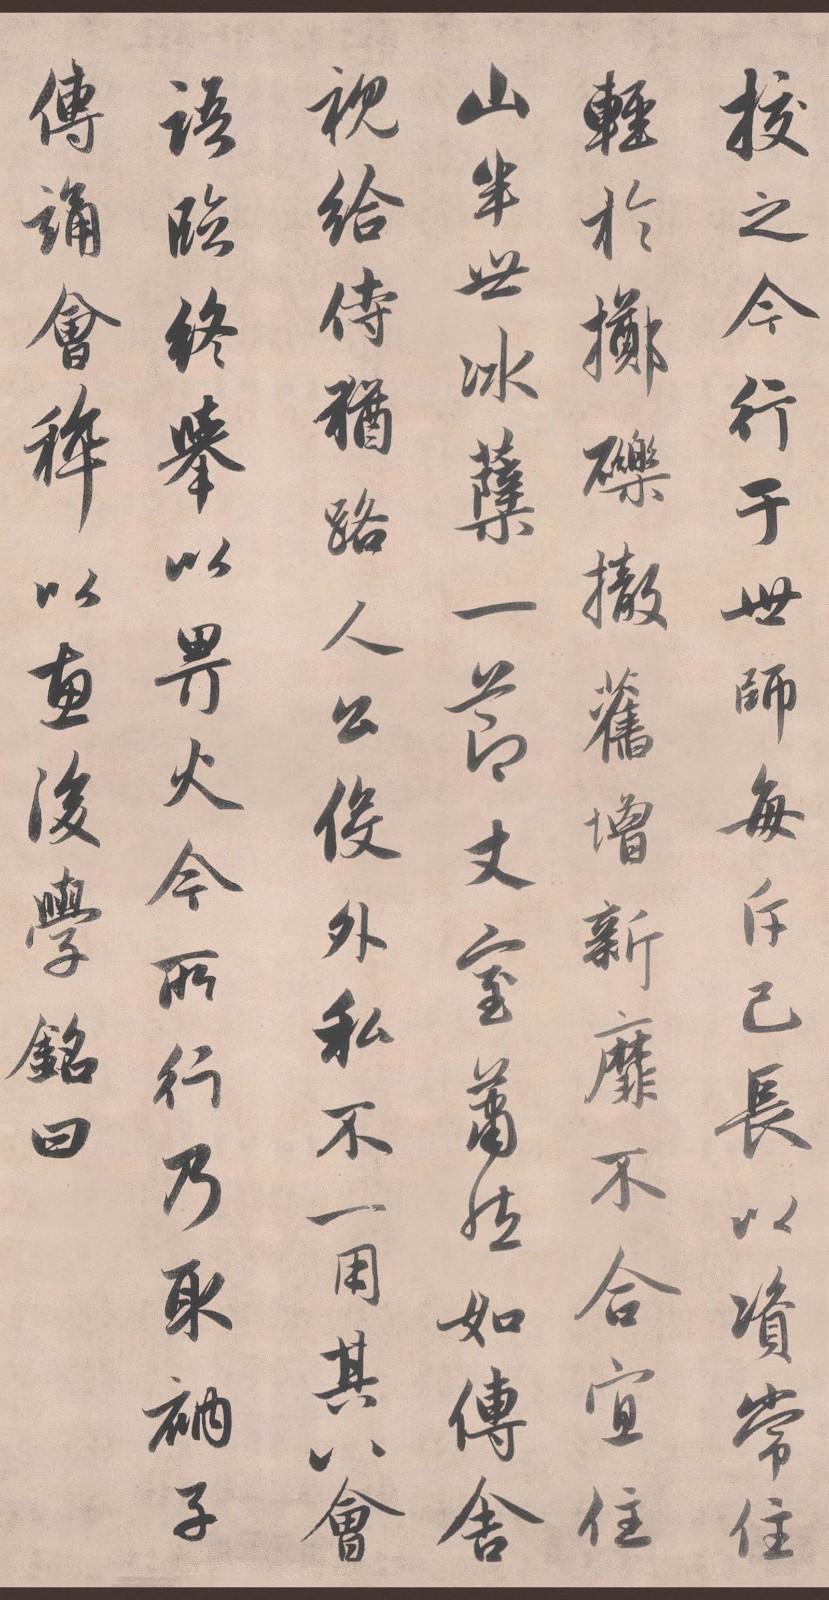 挍之今行于世師每斥己長以資常住
輕於擲礫撤舊增新靡不合宜住
山半世冰蘗一節丈室蕭然如傳舍
視給侍猶路人公役外私不一用其以會
語臨終舉以畀火今所行乃耴衲子
傳誦會稡以惠後學銘曰